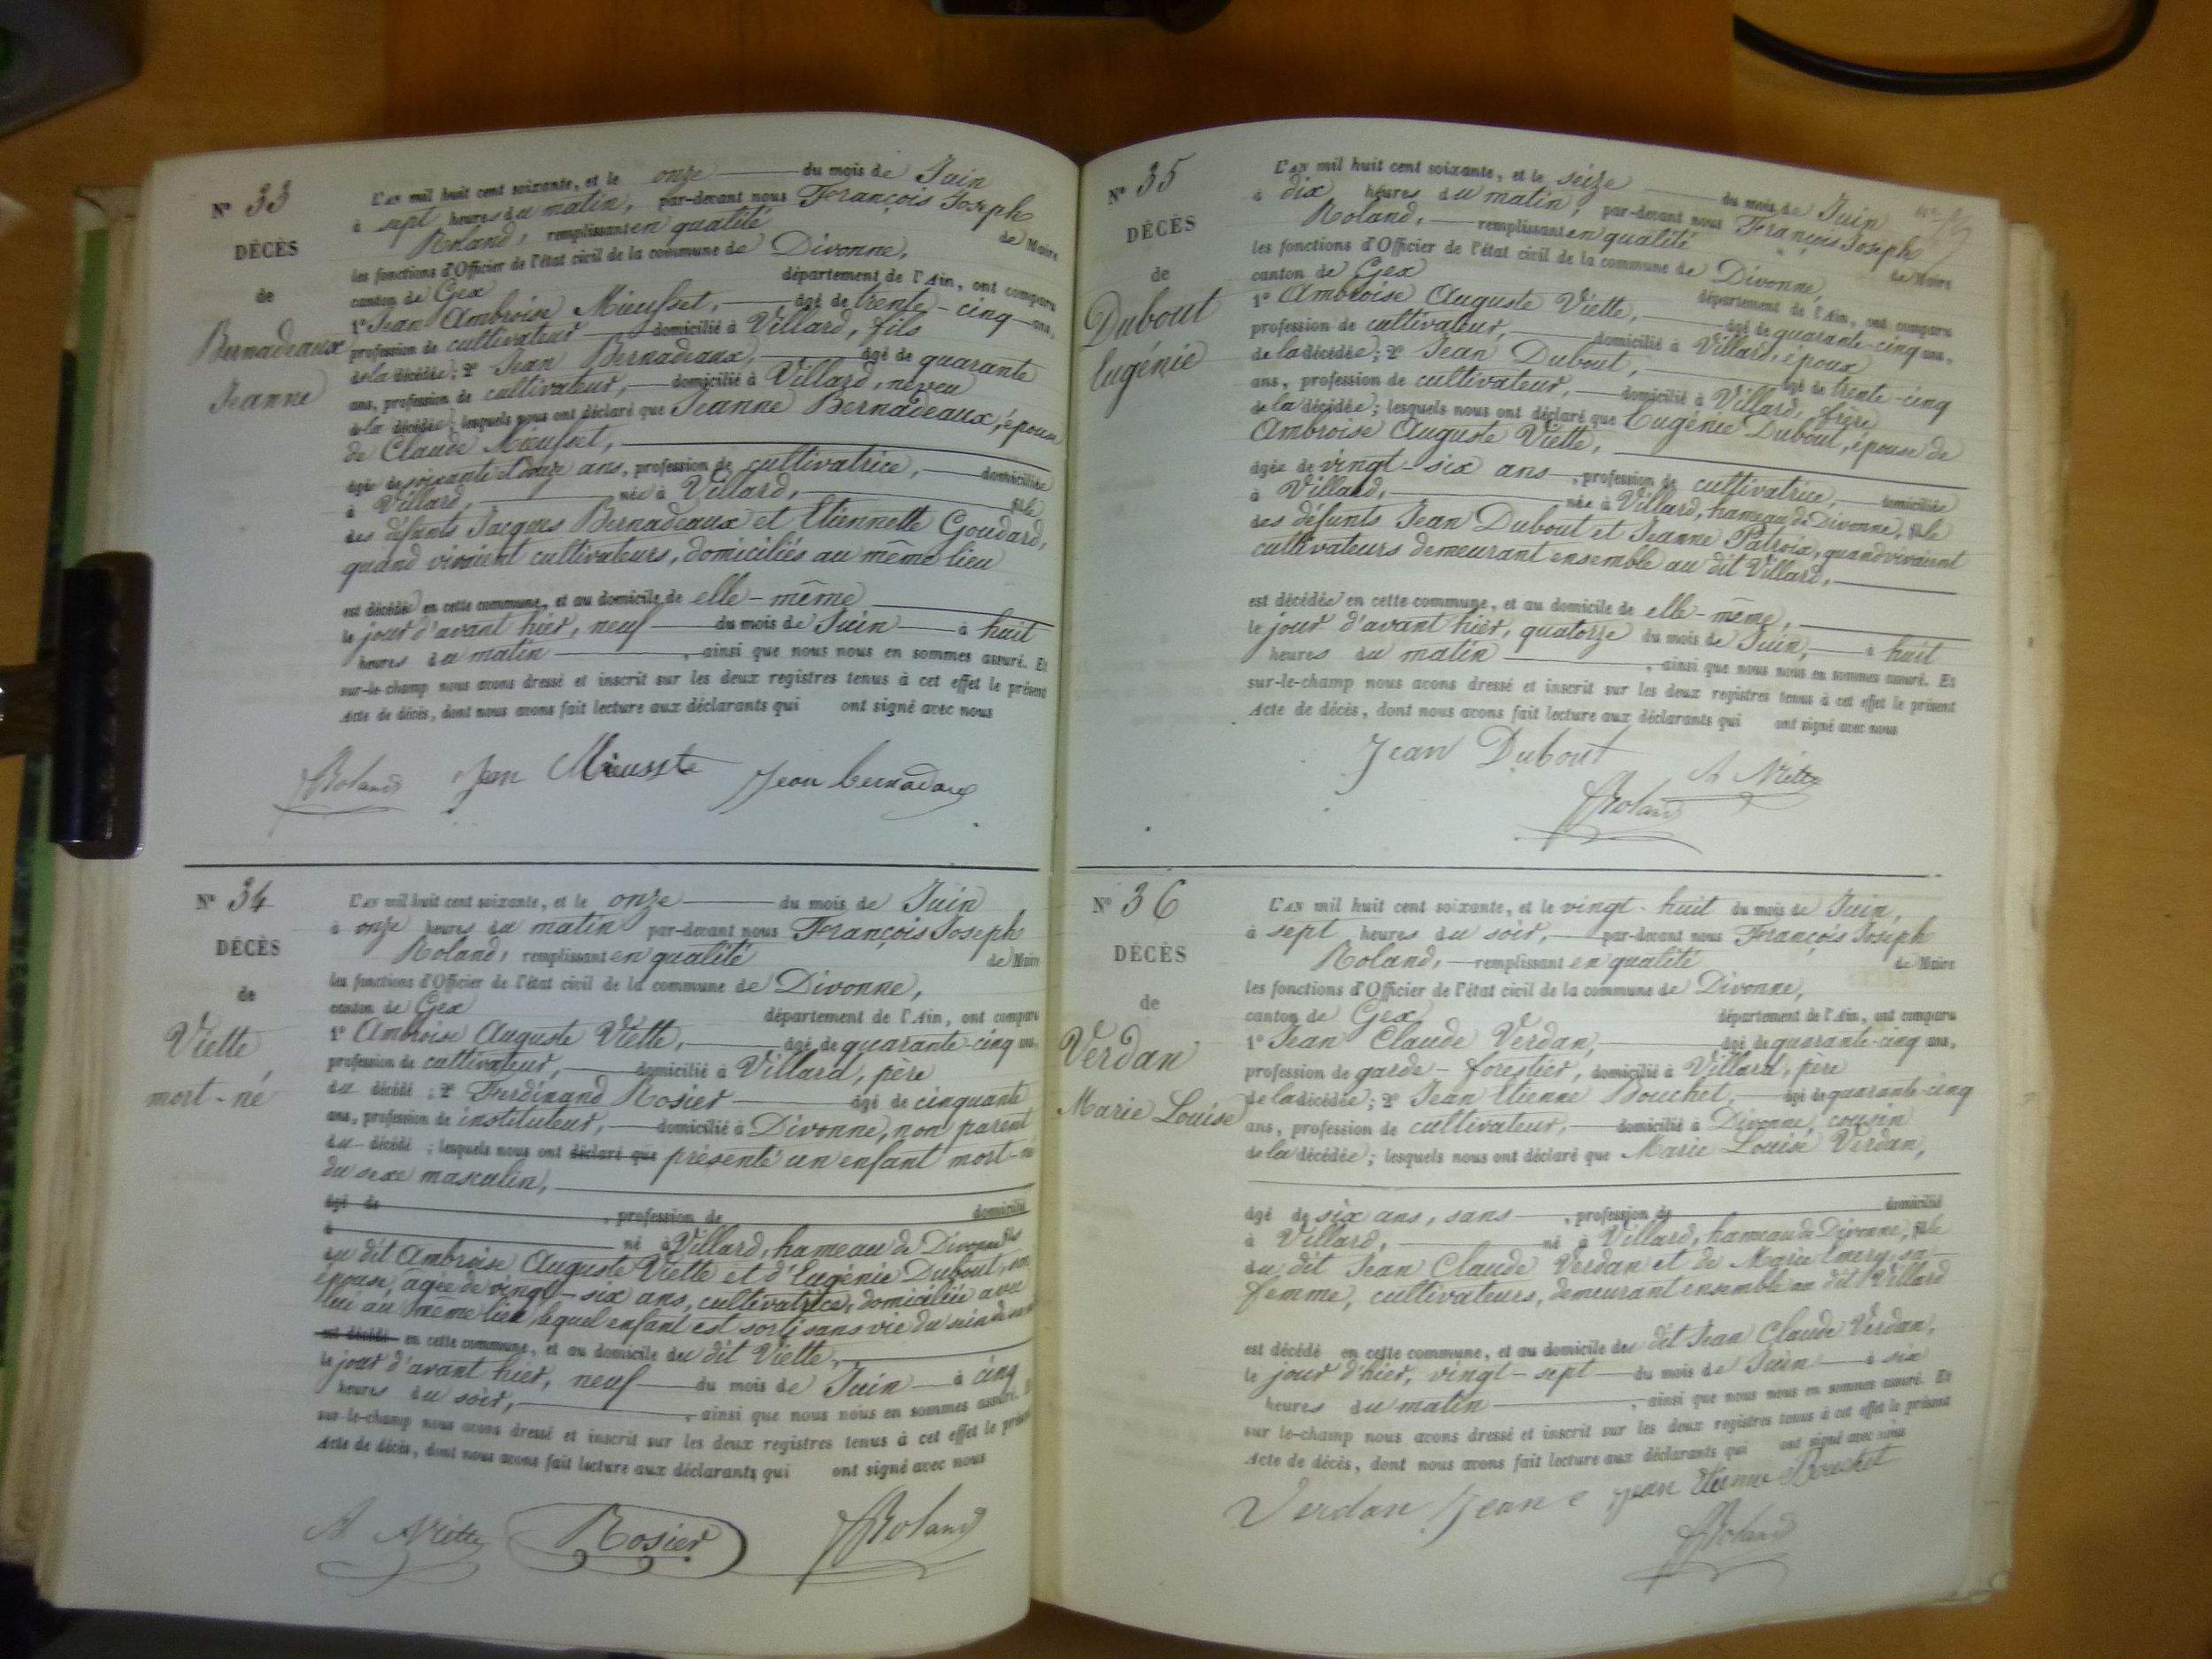 Nº 33
DÉCÈS
de
Bernadeaux
Jeanne
L'AN mil huit cent soixante, et le onze du mois de Juin
à sept heures du matin, par-devant nous François Joseph
Roland, remplissant en qualité de Maire
les fonctions d'Officier de l'état civil de la commune de Divonne,
canton de Gex département de l'Ain, ont comparu
1º Jean Ambroise Mieusset, âgé de trente-cinq ans,
profession de cultivateur domicilié à Villard, fils
de la décédée; 2º Jean Bernadeaux, âgé de quarante
ans, profession de cultivateur, domicilié à Villard, neveu
de la décédée; lesquels nous ont déclaré que Jeanne Bernadeaux, épouse
de Claude Mieusset,
âgée de soixante douze ans, profession de cultivatrice, domiciliée
à Villard, née à Villard, fille
des défunts Jacques Bernadeaux et Etiennette Goudard,
quand vivaient cultivateurs, domiciliés au même lieu
est décédée en cette commune, et au domicile de elle-même
le jour d'avant hier, neuf du mois de Juin à huit
heures du matin, ainsi que nous nous en sommes assuré. Et
sur-le-champ nous avons dressé et inscrit sur les deux registres tenus à cet effet le présent
Acte de décès, dont nous avons fait lecture aux déclarants qui ont signé avec nous
Roland Jean Mieusste Jean bernadaux
Nº 34
DÉCÈS
de
Viette,
mort-né
L'AN mil huit cent soixante, et le onze du mois de Juin
à onze heures du matin par-devant nous François Joseph
Roland, remplissant en qualité de Maire
les fonctions d'Officier de l'état civil de la commune de Divonne,
canton de Gex département de l'Ain, ont comparu
1º Ambroise Auguste Viette, âgé de quarante-cinq ans,
profession de cultivateur, domicilié à Villard, père
du décédé; 2º Ferdinand Rosier âgé de cinquante
ans, profession de instituteur, domicilié à Divonne, non parent
du décédé; lesquels nous ont déclaré que présenté un enfant mort-né
du sexe masculin,
âgé de, profession de domicilié
à né à Villard, hameau de Divonne fils
du dit Ambroise Auguste Viette et d'Eugénie Dubout, son
épouse, âgée de vingt-six ans, cultivatrice, domiciliée avec
lui au même lieu, lequel enfant est sorti sans vie du sein de sa
est décédé en cette commune, et au domicile du dit Viette,
le jour d'avant hier, neuf du mois de Juin à cinq
heures du soir, ainsi que nous nous en sommes assuré. Et
sur-le-champ nous avons dressé et inscrit sur les deux registres tenus à cet effet le présent
Acte de décès, dont nous avons fait lecture aux déclarants qui ont signé avec nous
A Viette Rosier Roland
Nº 35
DÉCÈS
de
Dubout
Eugénie
L'AN mil huit cent soixante, et le seize du mois de Juin
à dix heures du matin, par-devant nous François Joseph
Roland, remplissant en qualité de Maire
les fonctions d'Officier de l'état civil de la commune de Divonne,
canton de Gex département de l'Ain, ont comparu
1º Ambroise Auguste Viette, âgé de quarante-cinq ans,
profession de cultivateur, domicilié à Villard, époux
de la décédée; 2º Jean Dubout, âgé de trente-cinq
ans, profession de cultivateur, domicilié à Villard, frère
de la décédée; lesquels nous ont déclaré que Eugénie Dubout, épouse de
Ambroise Auguste Viette,
âgée de vingt-six ans, profession de cultivatrice, domiciliée
à Villard, née à Villard, hameau de Divonne, fille
des défunts Jean Dubout et Jeanne Patroix, quand vivaient
cultivateurs demeurant ensemble au dit Villard,
est décédée en cette commune, et au domicile de elle-même,
le jour d'avant hier, quatorze du mois de Juin, à huit
heures du matin, ainsi que nous nous en sommes assuré. Et
sur-le-champ nous avons dressé et inscrit sur les deux registres tenus à cet effet le présent
Acte de décès, dont nous avons fait lecture aux déclarants qui ont signé avec nous
Jean Dubout
A Viette
Roland
Nº 36
DÉCÈS
de
Verdan
Marie Louise
L'AN mil huit cent soixante, et le vingt-huit du mois de Juin,
à sept heures du soir, par-devant nous François Joseph
Roland, remplissant en qualité de Maire
les fonctions d'Officier de l'état civil de la commune de Divonne,
canton de Gex département de l'Ain, ont comparu
1º Jean Claude Verdan, âgé de quarante-cinq ans,
profession de garde-forestier, domicilié à Villard, père
de la décédée; 2º Jean Etienne Bouchet, âgé de quarante-cinq
ans, profession de cultivateur, domicilié à Divonne, cousin
de la décédée; lesquels nous ont déclaré que Marie Louise Verdan,
âgé de six ans, sans, profession de domicilié
à Villard, né à Villard, hameau de Divonne, fille
du dit Jean Claude Verdan et de Marie Emery sa
femme, cultivateurs, demeurant ensemble au dit Villard
est décédé en cette commune, et au domicile du dit Jean Claude Verdan,
le jour d'hier, vingt-sept du mois de Juin à six
heures du matin, ainsi que nous nous en sommes assuré. Et
sur le-champ nous avons dressé et inscrit sur les deux registres tenus à cet effet le présent
Acte de décès, dont nous avons fait lecture aux déclarants qui ont signé avec nous
Verdan Jean c jean Etienne Bouchet
Roland